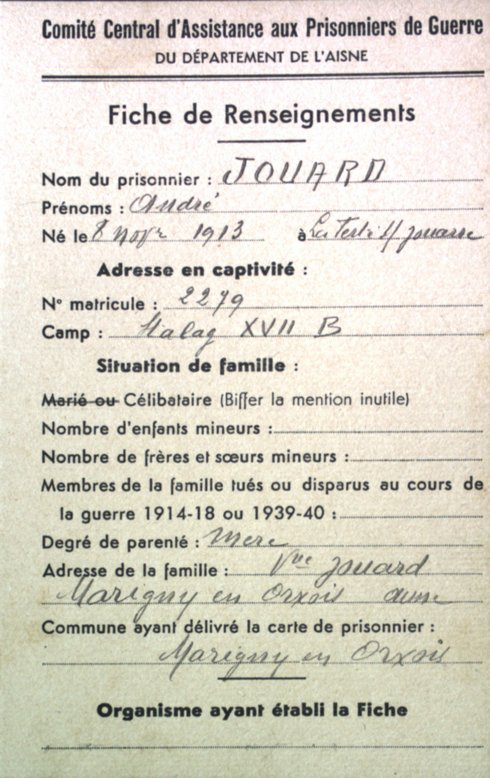 Comité Central d'Assistance aux Prisonniers de Guerre
DU DÉPARTEMENT DE L'AISNE
Fiche de Renseignements
Nom du prisonnier : JOUARD
Prénoms : André
Né le 8 novre 1913 à La Ferté s/ Jouarre
Adresse en captivité :
N° matricule : 2279
Camp : Stalag XVII B
Situation de famille :
Marié ou Célibataire (Biffer la mention inutile)
Nombre d'enfants mineurs :
Nombre de frères et sœurs mineurs :
Membres de la famille tués ou disparus au cours de
la guerre 1914-18 ou 1939-40 :
Degré de parenté : mere
Adresse de la famille : Vve Jouard
Marigny en Orxois aisne
Commune ayant délivré la carte de prisonnier :
Marigny en Orxois
Organisme ayant établi la Fiche